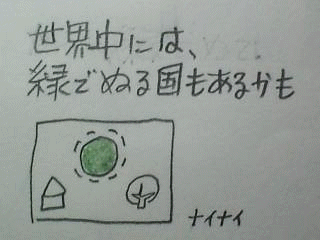 世界中には、
緑でぬる国もあるかも
ナイナイ